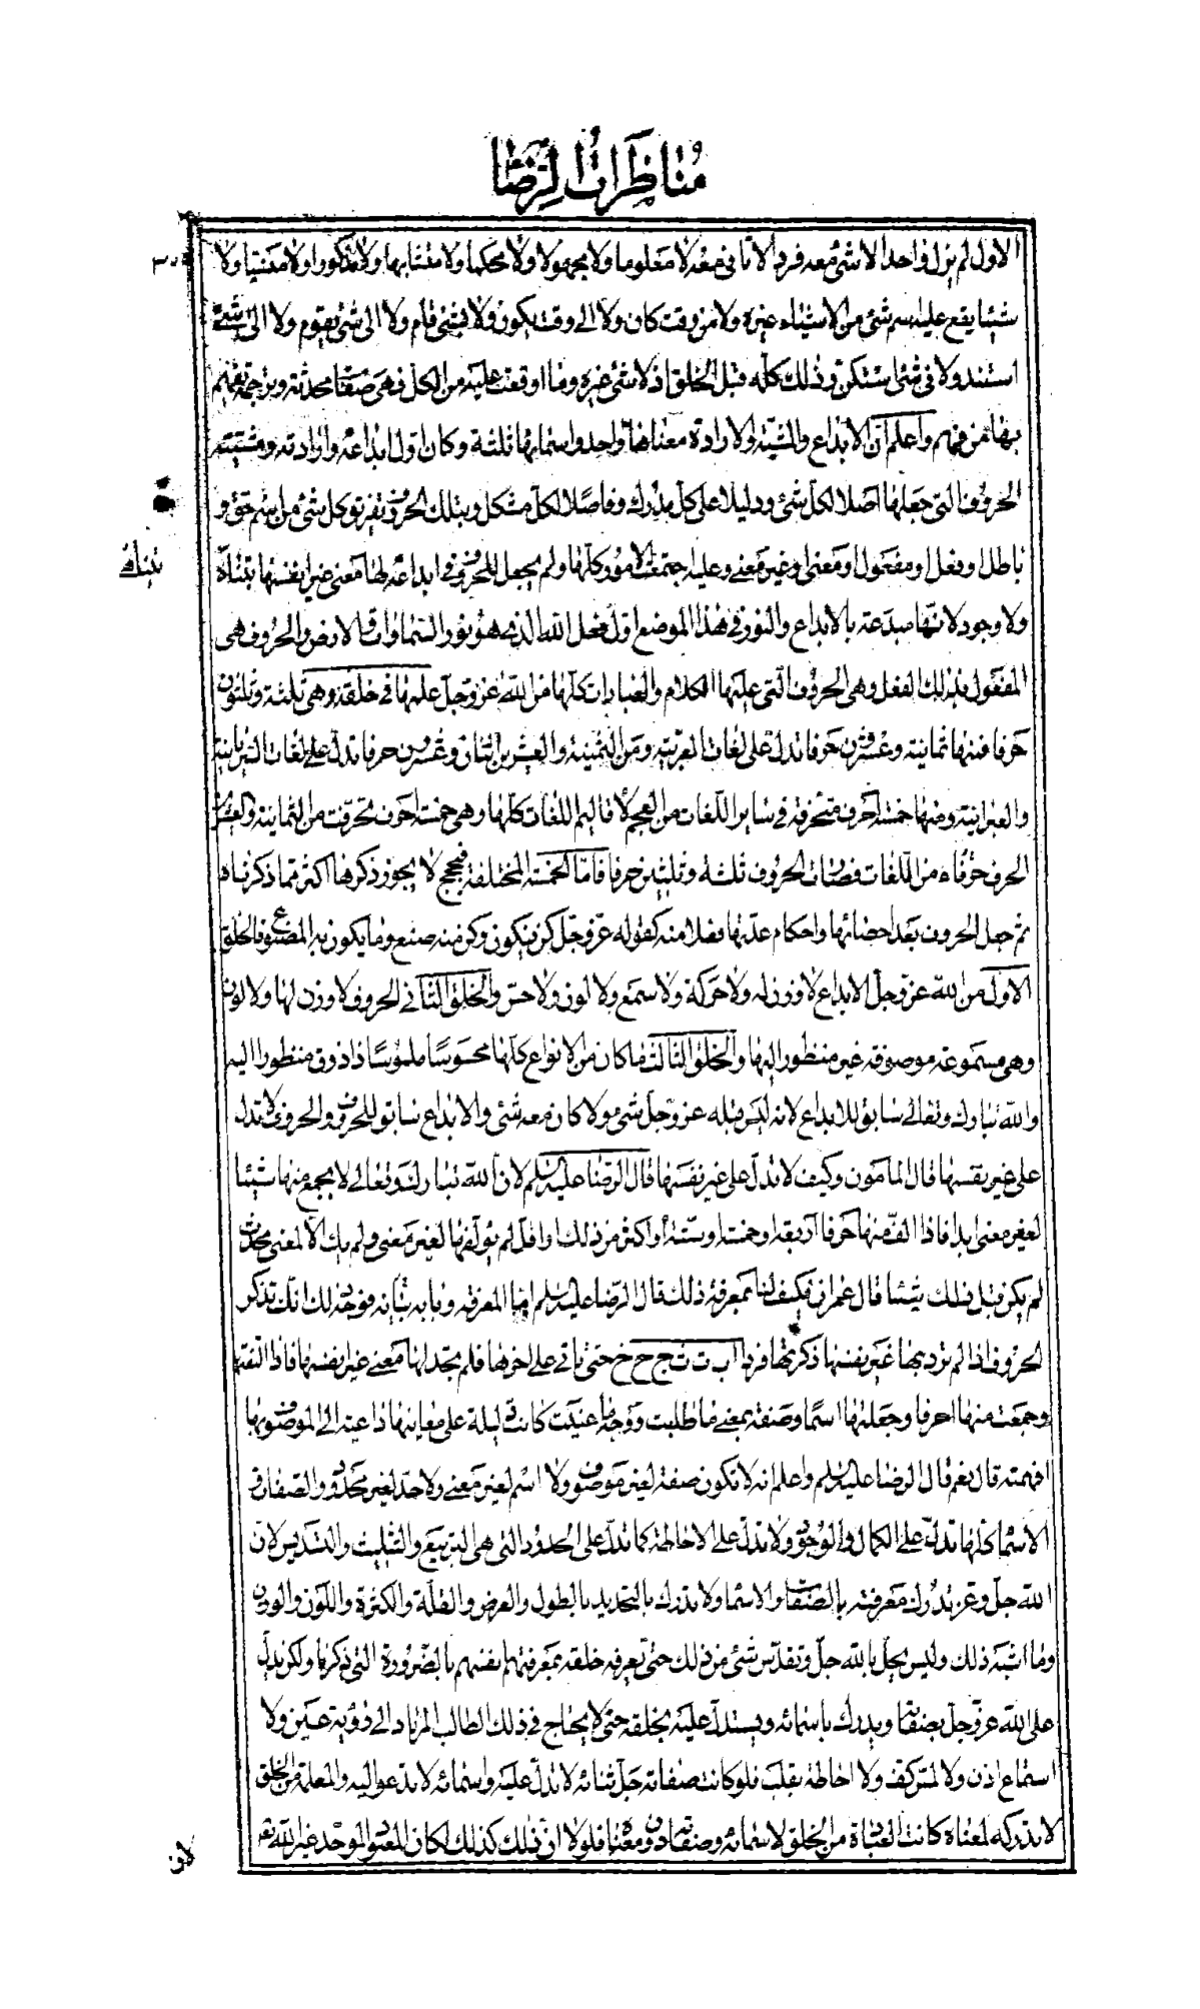 مناظرات الرضا
الاول لم يزل واحدا لا شئ معه فردا لا ثاني معه لا معلوما ولا مجهولا ولا محكما ولا متشابها ولا مذكورا ولا منسيا ولا
شيئا يقع عليه اسم شئ من الاشياء غيره ولا من وقت كان ولا الى وقت يكون ولا بشئ قام ولا الى شئ يقوم ولا الى شئ
استند ولا في شئ استكن وذلك كله قبل الخلق اذ لا شئ غيره وما اوقعت عليه من الكل فهي صفات محدثة وترجمة يفهم
بها من فهم واعلم ان الابداع والمشية والارادة معناها واحد واسماؤها ثلثة وكان اول ابداعه وارادته ومشيته
الحروف التي جعلها اصلا لكل شئ ودليلا على كل مدرك وفاصلا لكل مشكل وبتلك الحروف تفريق كل شئ من اسم حق و
باطل وفعل او مفعول او معنى او غير معنى وعليها اجتمعت الامور كلها ولم يجعل للحروف في ابداعه لها معنى غير انفسها بتناه
ولا وجود لانها مبدعة بالابداع والنور في هذا الموضع اول فعل الله الذي هو نور السماوات والارض والحروف هي
المفعول بذلك الفعل وهي الحروف التي عليها الكلام والعبارات كلها من الله عز وجل علمها في خلقه وهي ثلثة وثلثون
حرفا فمنها ثمانية وعشرون حرفا تدل على لغات العربية ومن الثمنية والعشرين اثنان وعشرون حرفا تدل على لغات السريانية
والعبرانية ومنها خمسة احرف متحرفة في ساير اللغات من العجم لاقاليم اللغات كلها وهي خمسة احرف تحرفت من الثمانية والعشرين
الحرف حرفاء من اللغات فصارت الحروف ثلثة وثلثين حرفا فاما الخمسة المختلفة فبحجج لا يجوز ذكرها اكثر مما ذكرناه
ثم جعل الحروف بعد احصائها واحكام عدتها فعلا منه كقوله عز وجل كن فيكون وكن منه صنع وما يكون به المصنوع فالخلق
الاول من الله عز وجل الابداع لا وزن له ولا حركة ولا سمع ولا لون ولا حس والخلق الثاني الحروف لا وزن لها ولا لون
وهي مسموعة موصوفة غير منظور اليها والخلق الثالث ما كان من الانواع كلها محسوسا ملموسا ذا ذوق منظورا اليه
والله تبارك وتعالى سابق للابداع لانه ليس قبله عز وجل شئ ولا كان معه شئ والابداع سابق للحروف والحروف لا تدل
على غير نفسها قال المامون وكيف لا تدل على غير نفسها قال الرضا عليه السلم لان الله تبارك وتعالى لا يجمع منها شيئا
لغير معنى ابدا فاذا الف منها حرفا اربعة او خمسة او ستة او اكثر من ذلك او اقل لم يؤلفها لغير معنى ولم يك الا لمعنى محدث
لم يكن قبل ذلك شيئا قال عمران فكيف لنا بمعرفة ذلك قال الرضا عليه السلم اما المعرفة وبابه بيانه فوجه ذلك انك تذكر
الحروف اذا لم ترد بها غير نفسها ذكرتها فردا ا ب ت ث ج ح خ حتى تاتي على اخرها فلم تجد لها معنى غير انفسها فاذا الفتها
وجمعت منها احرفا وجعلتها اسما وصفة بمعنى ما طلبت ووجه ما عنيت كانت دليلة على معانيها داعية الى الموصوف بها
افهمته قال نعم قال الرضا عليه السلم واعلم انه لا تكون صفة لغير موصوف ولا اسم لغير معنى ولا حد لغير محدود والصفات و
الاسماء كلها تدل على الكمال والوجود ولا تدل على الاحاطة كما تدل على الحدود التي هي التربيع والتثليث والتسديس لان
الله جل وعز تدرك معرفته بالصفات والاسماء ولا تدرك بالتحديد بالطول والعرض والقلة والكثرة واللون والوزن
وما اشبه ذلك وليس يحل بالله جل وتقدس شئ من ذلك حتى يعرفه خلقه بمعرفتهم انفسهم بالضرورة التي ذكرنا ولكن يدل
على الله عز وجل بصفاته ويدرك باسمائه ويستدل عليه بخلقه حتى لا يحتاج في ذلك الطالب المرتاد الى رؤية عين ولا
استماع اذن ولا لمس كف ولا احاطة بقلب فلو كانت صفاته جل ثناؤه لا تدل عليه واسمائه لا تدعو اليه والمعلمة من الخلق
لا تدركه لمعناه كانت العبادة من الخلق لاسمائه وصفاته دون معناه فلولا ان ذلك كذلك لكان المعبود الموحد غير الله تع
لان